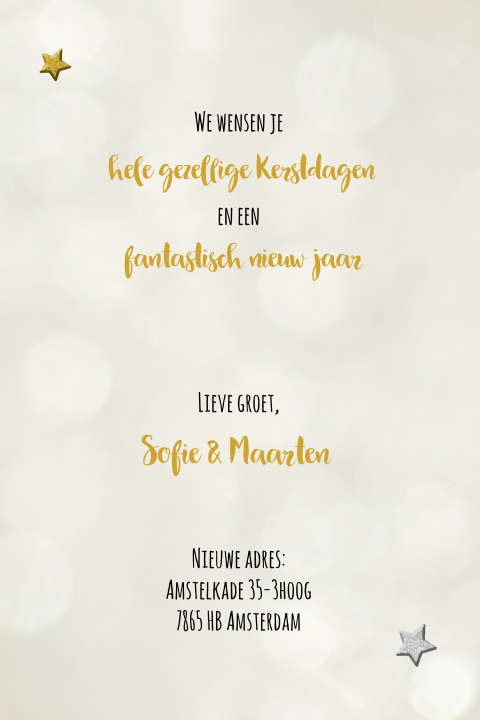 We wensen je
hele gezellige Kerstdagen
en een
fantastisch nieuw jaar
Lieve groet,
Sofie & Maarten
Nieuwe adres:
Amstelkade 35-3hoog
7865 HB Amsterdam